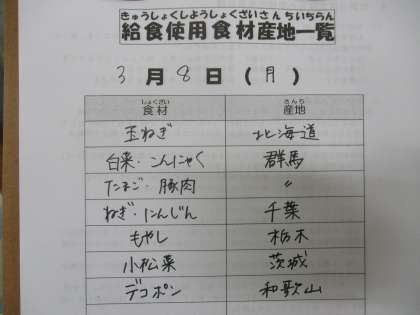 きゅうしょくしようしょくざいさんちいちらん
給食使用食材産地一覧
3月8日(月)
しょくざい さんち
食材 産地
玉ねぎ 北海道
白菜・こんにゃく 群馬
たまご・豚肉 〃
ねぎ・にんじん 千葉
もやし 栃木
小松菜 茨城
デコポン 和歌山